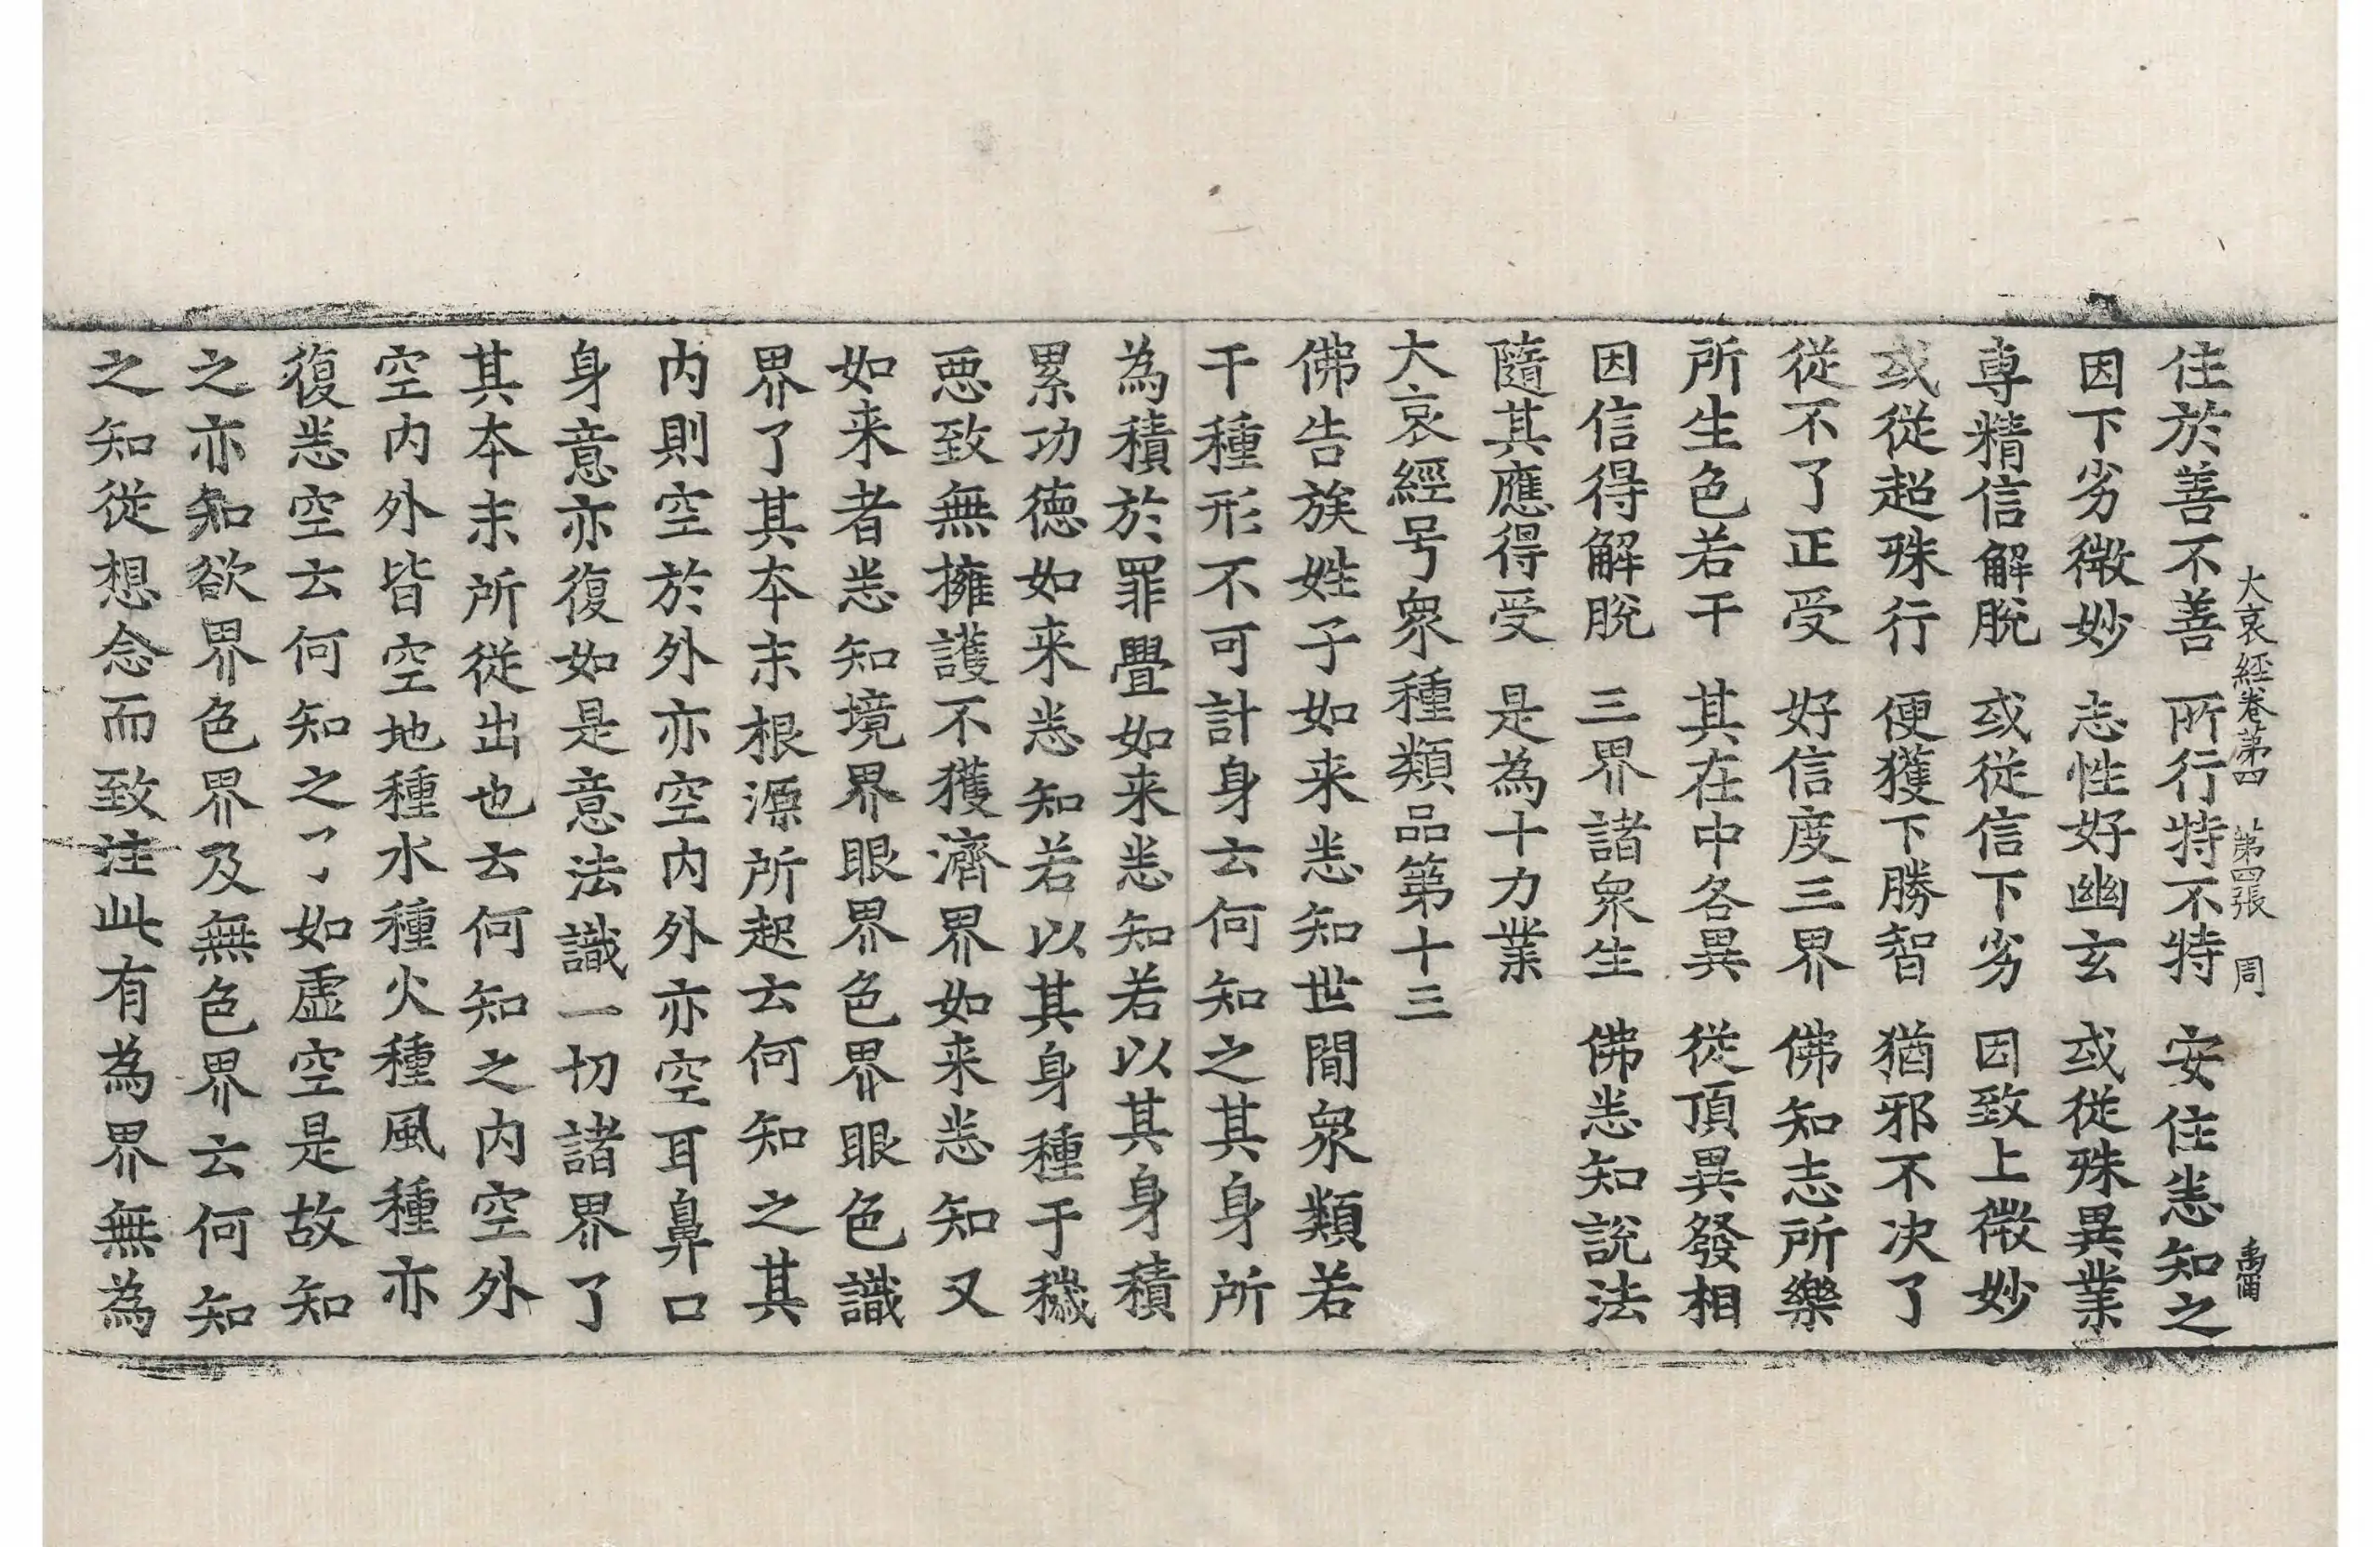 大哀經卷第四　第四張　周
住於善不善　所行特不特　安住悉知之
因下劣微妙　志性好幽玄　或從殊異業
専精信解脫　或從信下劣　因致上微妙
或從超殊行　便獲下勝智　猶邪不决了
從不了正受　好信度三界　佛知志所樂
所生色若干　其在中各異　從頂異發相
因信得解脫　三界諸衆生　佛悉知說法
隨其應得受　是為十力業
大哀經号衆種類品第十三
佛告族姓子如来悉知世間衆類若
干種形不可計身云何知之其身所
為積於罪疊如来悉知若以其身積
累功德如来悉知若以其身種于穢
惡致無擁護不獲濟界如来悉知又
如来者悉知境界眼界色界眼色識
界了其本末根源所起云何知之其
内則空於外亦空内外亦空耳鼻口
身意亦復如是意法識一切諸界了
其本末所從出也云何知之内空外
空内外皆空地種水種火種風種亦
復悉空云何知之了了如虛空是故知
之亦知欲界色界及無色界云何知
之知從想念而致注此有為界無為